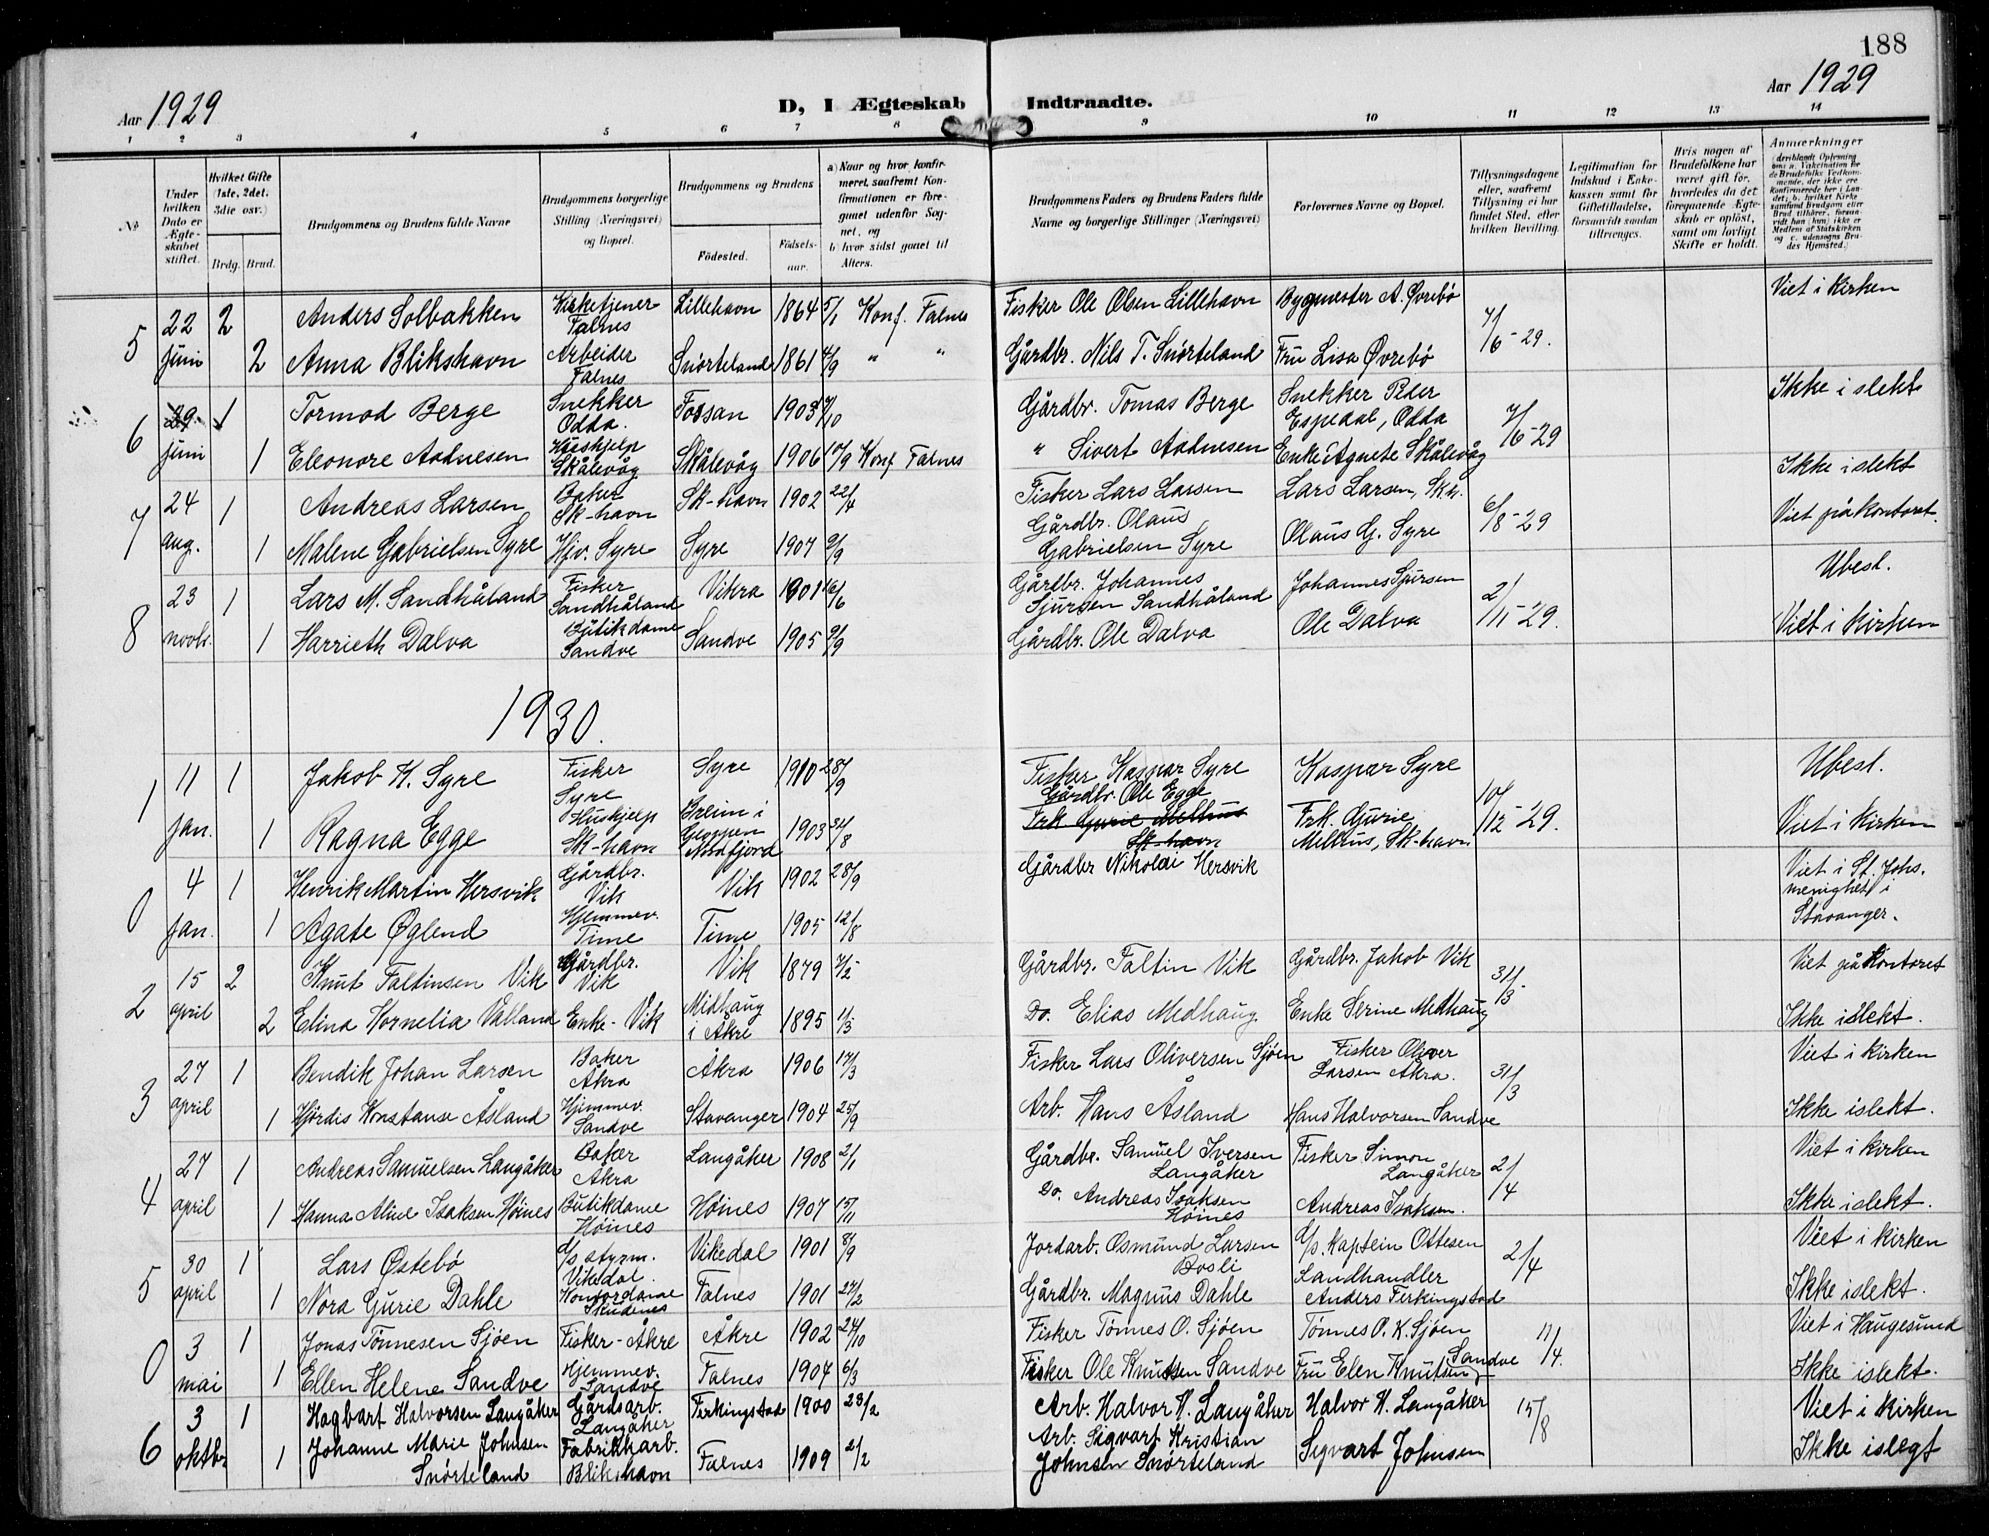 188
Aar 1929
D, I Ægteskab Indtraadte.
Aar 1929
1 2 3 4 5 6 7 8 9 10 11 12 13 14
No
Under hvilken Dato er Ægteskabet stiftet.
Hvilket Gifte (1ste, 2det, 3die osv.)
Brdg. Brud.
Brudgommens og Brudens fulde Navne
Brudgommens borgerlige Stilling (Næringsvei) og Bopæl.
Brudgommens og Brudens
Födested.
Födselsaar.
a) Naar og hvor konfirmeret, saafremt Konfirmationen er foregaaet udenfor Sognet, og
b) hvor sidst gaaet til Alters.
Brudgommens Faders og Brudens Faders fulde Navne og borgerlige Stillinger (Næringsvei)
Forlovernes Navne og Bopæl.
Tillysningsdagene eller, saafremt Tillysning ei har fundet Sted, efter hvilken Bevilling.
Legitimation for Indskud i Enkekassen samt for Giftetilladelse, forsaavidt saadan tiltrænges.
Hvis nogen af Brudefolkene har været gift för, hvorledes da det foregaaende Ægteskab er oplöst, samt om lovligt Skifte er holdt.
Anmærkninger
5 22 juni 2 Anders Solbakken Kirketjener Falnes Lillehavn 1864 5/1 Konf. Falnes Fisker Ole Olsen Lillehavn Bygmester A. Øvrebø 7/6-29. Viet i kirken
2 Anna Blikshavn Arbeider Falnes Snørteland 1861 4/9 " " Gårdbr. Nils T. Snørteland Fru Lisa Øvrebø
6 29. juni 1 Tormod Berge Snekker Odda. Fossan 1903 7/10 Gårdbr. Tomas Berge Snekker Peder Espedal, Odda 7/6-29 Ikke i slekt
1 Eleonore Aadnesen Hushjelp Skålevåg Skålevåg 1906 17/9 Konf Falnes " Sivert Aadnesen Enke Agnete Skålevåg
7 24 aug. 1 Andreas Larsen Baker Sk-havn Sk-havn 1902 22/4 Fisker Lars Larsen Lars Larsen, Skh. 6/8-29 Ikke i slekt
1 Malene Gabrielsen Syre Hjv. Syre Syre 1907 9/9 Gårdbr. Olaus Gabrielsen Syre Olaus G. Syre Viet på kontoret.
8 23 novbr. 1 Lars M. Sandhåland Fisker Sandhåland Vikra 1901 16/6 Gårdbr. Johannes Sjursen Sandhåland Johannes Sjursen 2/11-29. Ubesl.
1 Harrieth Dalva Butikdame Sandve Sandve 1905 9/9 Gårdbr. Ole Dalva Ole Dalva Viet i kirken
1930.
1 11 jan. 1 Jakob K. Syre Fisker Syre Syre 1910 28/9 Fisker Kaspar Syre Kaspar Syre 10/12-29. Ubesl.
1 Ragna Egge Hushjelp Sk-havn Breim i Gloppen Nordfjord 1903 31/8 Gårdbr. Ole Egge Frk Gurie Melhus Sk-havn Frk. Gurie Melhus, Sk-havn Viet i kirken
0 4 jan. 1 Henrik Martin Hersvik Gårdbr. Vik Vik 1902 28/9 Gårdbr Nikolai Hersvik Viet i St. Johs. menighet i Stavanger.
1 Agate Øglend Hjemmev. Time Time 1905 12/8
2 15 april 2 Knut Faltinsen Vik Gårdbr. Vik Vik 1879 7/2 Gårdbr. Faltin Vik Gårdbr. Jakob Vik 31/3 Viet på kontoret
2 Elina Kornelia Valland Enke - Vik Midhaug i Åkre 1895 11/3 Do. Elias Medhaug Enke Serine Medhaug Ikke i slekt.
3 27 april 1 Bendik Johan Larsen Baker Åkra Åkra 1906 17/3 Fisker Lars Oliversen Sjøen Fisker Oliver Larsen Åkra. 31/3 Viet i kirken
1 Hjørdis Konstanse Åsland Hjemmev. Sandve Stavanger 1904 25/9 Arb. Hans Åsland Hans Halvorsen Sandve Ikke islekt.
4 27 april 1 Andreas Samuelsen Langåker Baker Åkra Langåker 1908 2/1 Gårdbr. Samuel Iversen Langåker Fisker Simon Langåker 2/4 Viet i kirken
1 Hanna Aline Isaksen Høines Butikdame Høines Høines 1907 15/11 Do. Andreas Isaksen Høines Andreas Isaksen. Ikke i slekt.
5 30 april 1 Lars Østebø d/s styrm. Vikedal. Vikedal 1901 8/9 Jordarb. Osmund Larsen Bosli d/s. kaptein Ottesen 2/4 Viet i kirken
1 Nora Gurie Dahle Kontordame Skudenes Falnes 1901 27/2 Gårdbr. Magnus Dahle Landhandler Anders Ferkingstad Ikke islekt.
0 3 mai 1 Jonas Tønnesen Sjøen Fisker - Åkre Åkre 1902 24/10 Fisker Tønnes O. Sjøen Tønnes O. K. Sjøen 11/4. Viet i Haugesund
1 Ellen Helene Sandve Hjemmev. Sandve Falnes 1904 6/3 Fisker Ole Knutsen Sandve Fru Elen Knutsen Sandve Ikke islekt.
6 3 oktbr 1 Hagbart Halvorsen Langåker Gårdsarb. Langåker Ferkingstad 1900 23/2 Arb. Halvor H. Langåker Halvor H. Langåker 15/8 Viet i kirken
1 Johanne Marie Johnsen Snørteland Fabrikkarb. Blikshavn Falnes 1909 2/2 Arb. Sigvart Kristian Johnsen Snørteland Sigvart Johnsen Ikke islegt